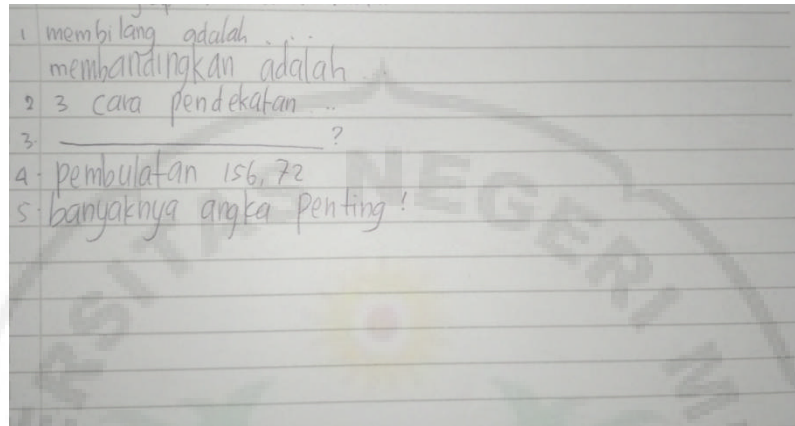 1 membilang adalah . . .
membandingkan adalah ..
2 3 cara pendekatan ...
3. ____________ ?
4. pembulatan 156,72
5. banyaknya angka penting!
RSITAS NEGERI M